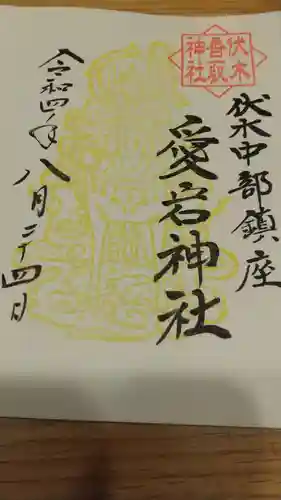 伏木香取神社
伏木中部鎮座
愛宕神社
令和四年八月二十四日